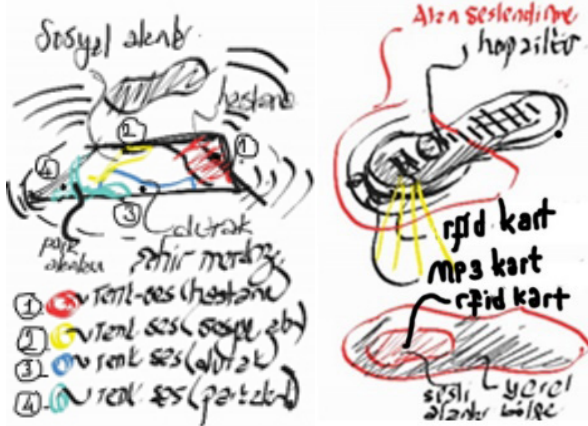 Sosyal alan
hastane
2
1
4
3
durak
park
şehir merkezi
1 renk-ses (hastane)
2 renk ses (sosyal al)
3 renk ses (durak)
4 renk ses (park)
Alan seslendirme
hoparlör
rfid kart
MP3 kart
rfid kart
sesli
alan
yerel
bölge